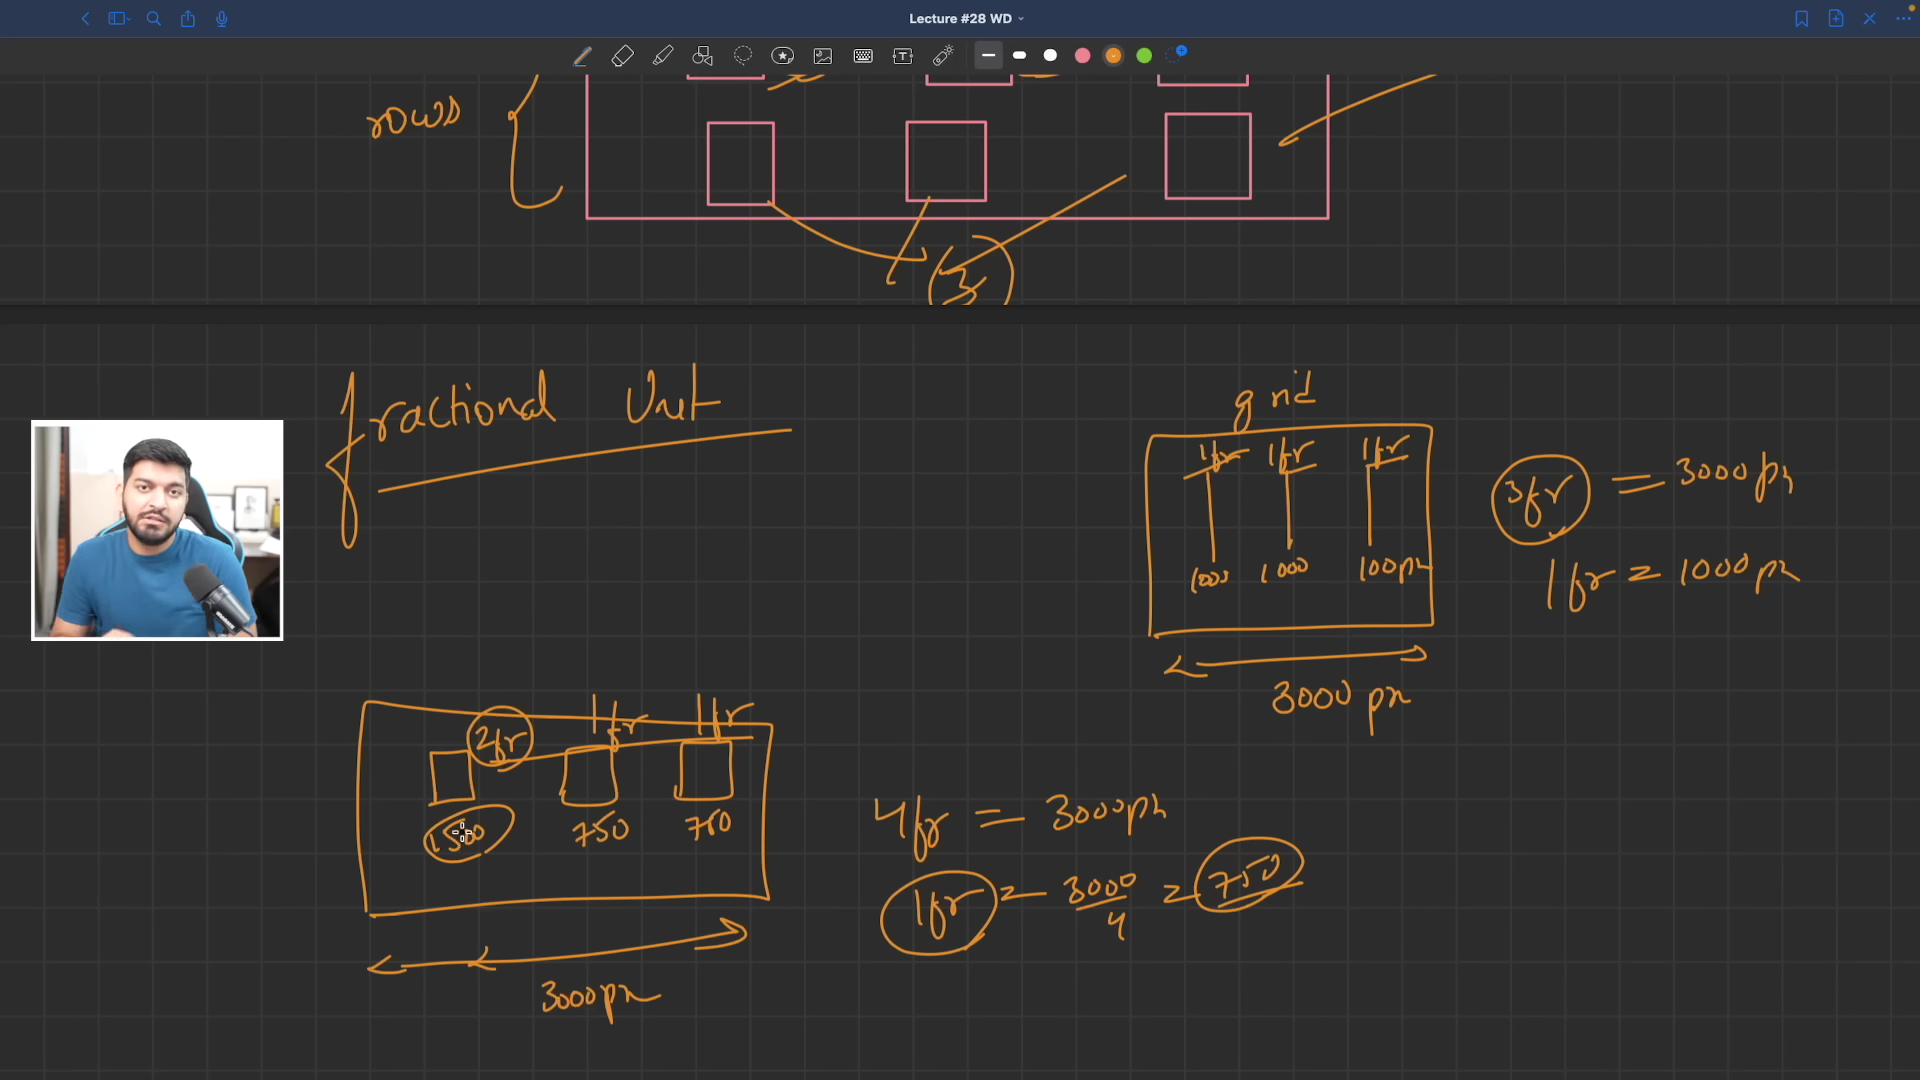 Lecture #28 WD
rows
3
fractional Unit
grid
1fr 1fr 1fr
1000 1000 100px
3000 px
3fr = 3000px
1fr = 1000px
2fr 1fr 1fr
1500 750 750
3000px
4fr = 3000px
1fr = 3000/4 = 750